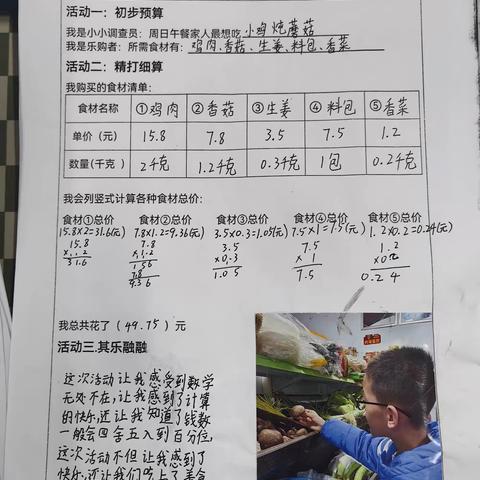 活动一：初步预算
我是小小调查员：周日午餐家人最想吃小鸡炖蘑菇
我是乐购者：所需食材有：鸡肉、香菇、生姜、料包、香菜
活动二：精打细算
我购买的食材清单：
食材名称 ①鸡肉 ②香菇 ③生姜 ④料包 ⑤香菜
单价（元） 15.8 7.8 3.5 7.5 1.2
数量(千克) 2千克 1.2千克 0.3千克 1包 0.2千克
我会列竖式计算各种食材总价：
食材①总价 食材②总价 食材③总价 食材④总价 食材⑤总价
15.8×2=31.6(元) 7.8×1.2=9.36(元) 3.5×0.3=1.05(元) 7.5×1=7.5(元) 1.2×0.2=0.24(元)
15.8 7.8 3.5 7.5 1.2
×1.2 ×0.3 ×1
31.6 156 1.05 7.5 0.24
78
9.36
我总共花了（49.75）元
活动三.其乐融融
这次活动让我感受到数学
无处不在，让我感到了计算
的快乐，还让我知道了钱数
一般会四舍五入到百分位，
这次活动不但让我感到了
快乐，还让我们吃上了美食